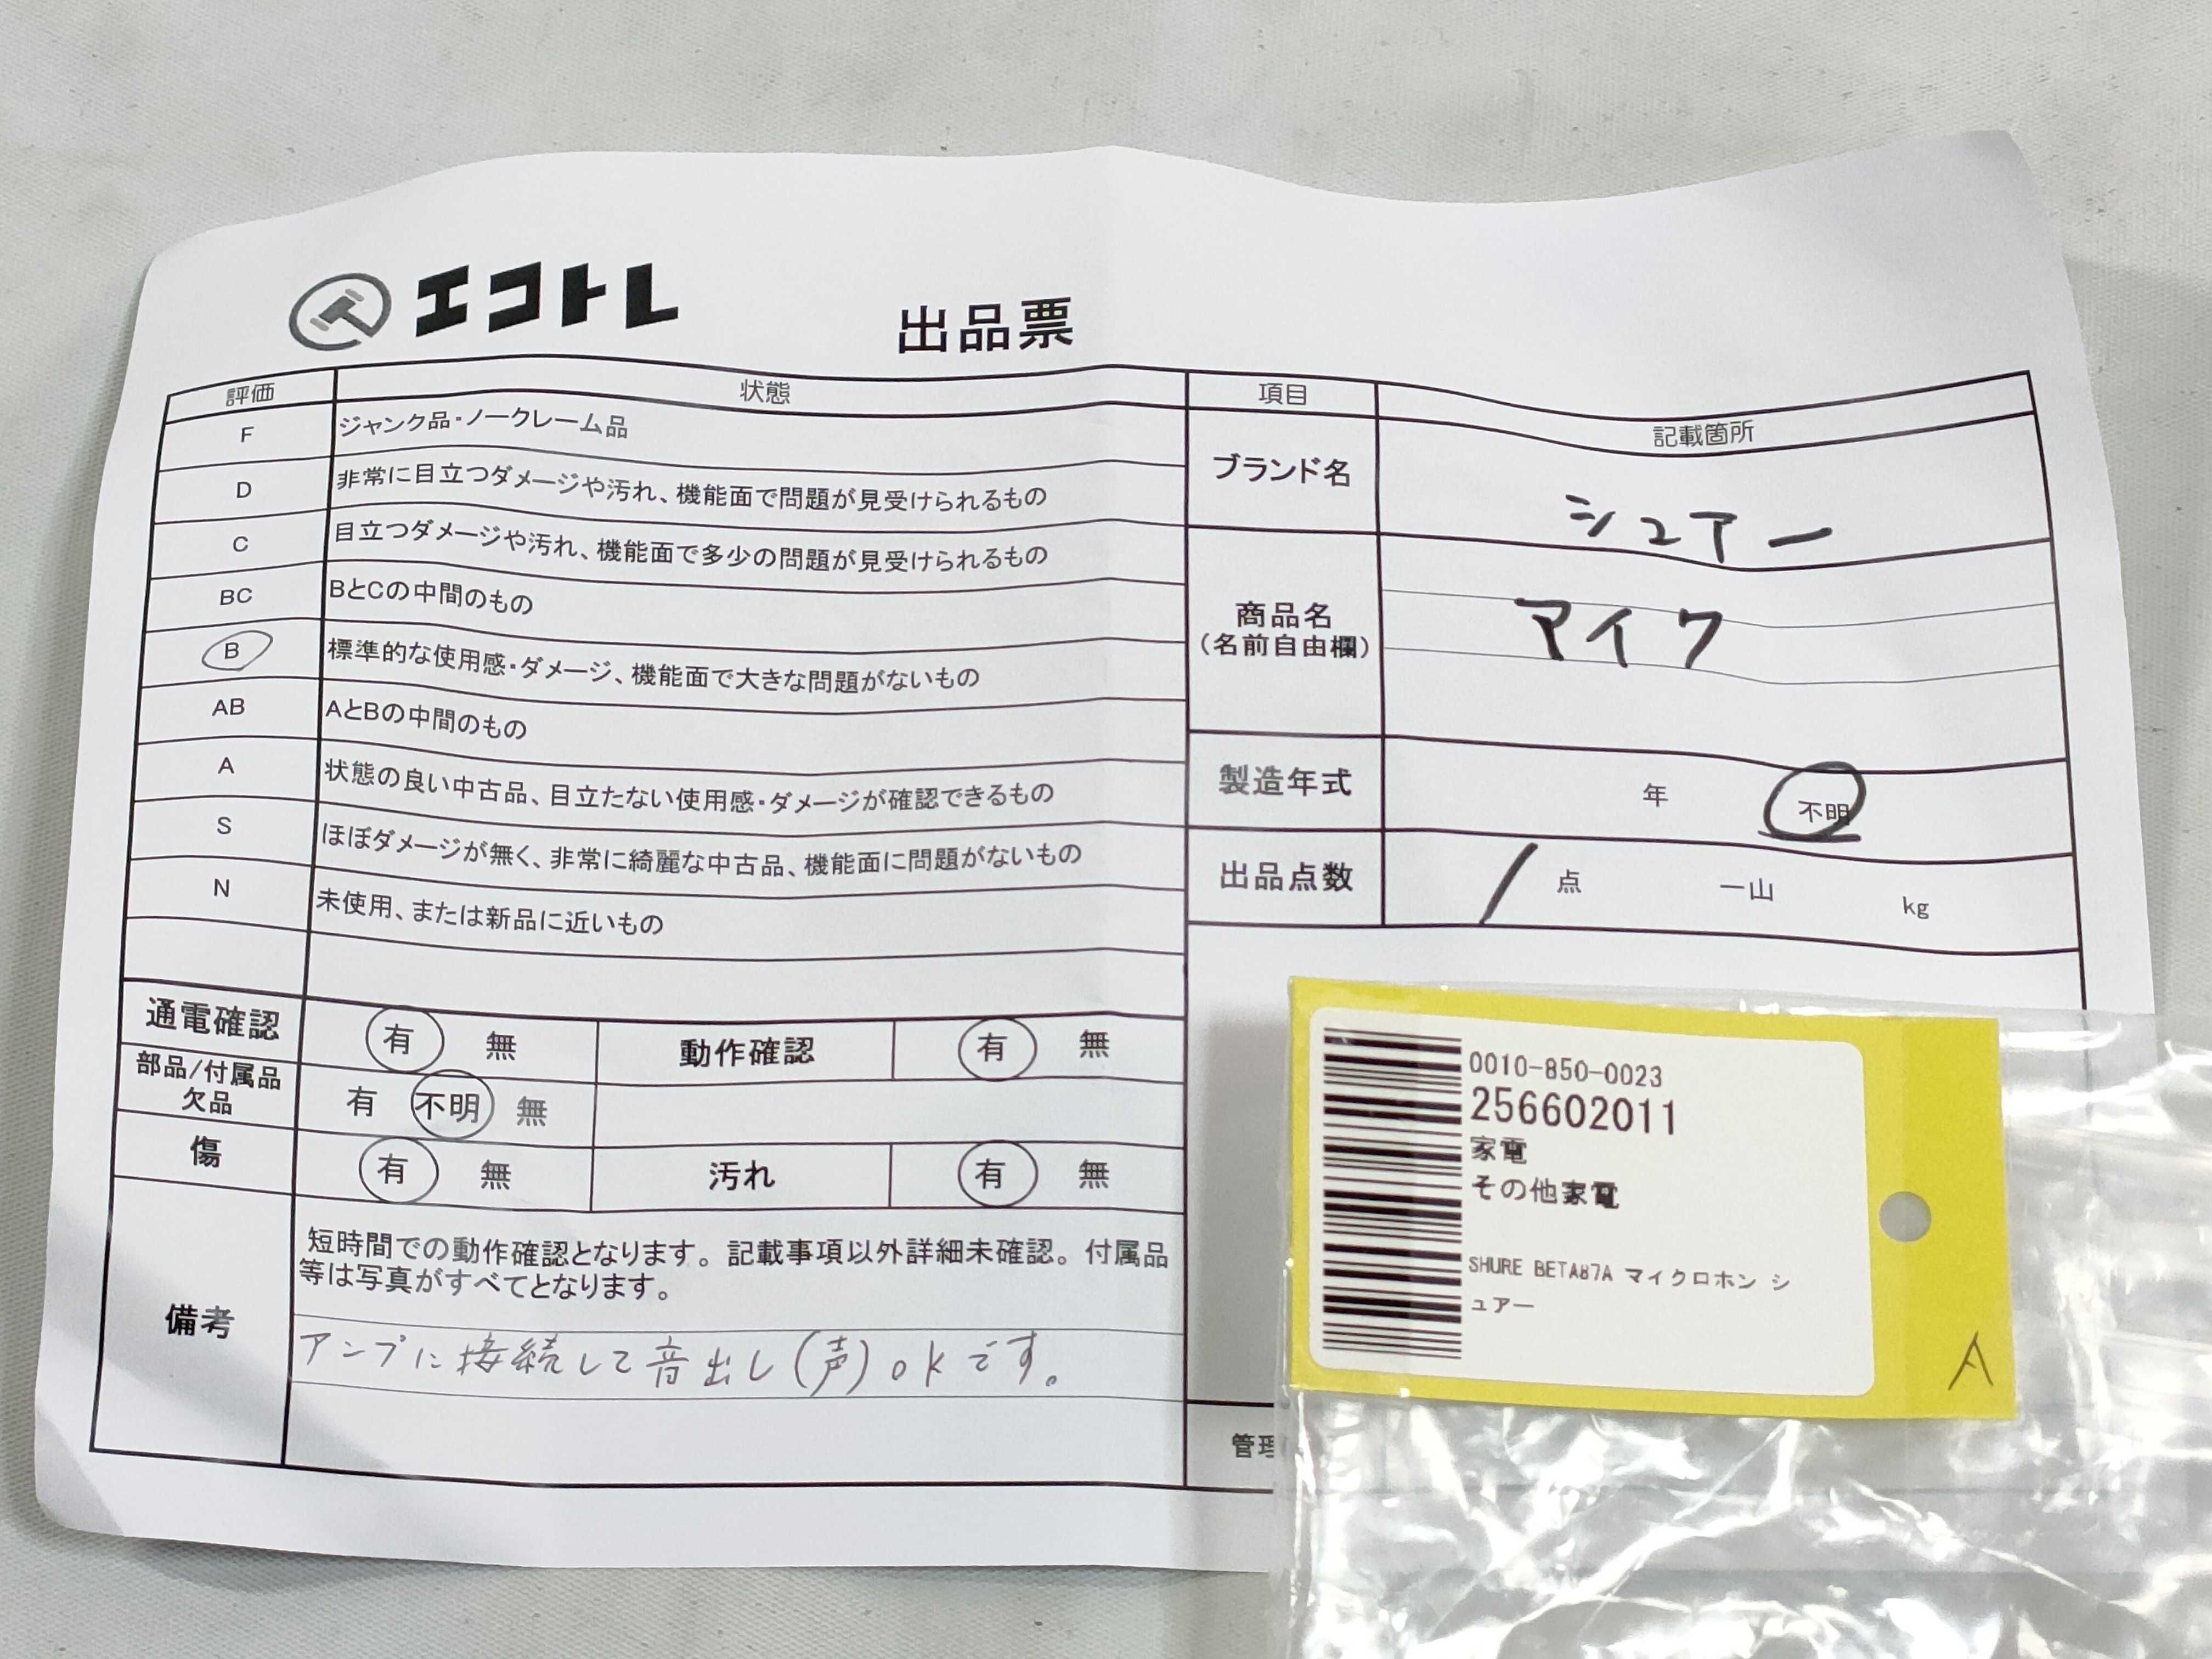 エコトレ
出品票
評価 状態
F ジャンク品・ノークレーム品
D 非常に目立つダメージや汚れ、機能面で問題が見受けられるもの
C 目立つダメージや汚れ、機能面で多少の問題が見受けられるもの
BC BとCの中間のもの
B 標準的な使用感・ダメージ、機能面で大きな問題がないもの
AB AとBの中間のもの
A 状態の良い中古品、目立たない使用感・ダメージが確認できるもの
S ほぼダメージが無く、非常に綺麗な中古品、機能面に問題がないもの
N 未使用、または新品に近いもの
通電確認 有 無 動作確認 有 無
部品/付属品
欠品
有 不明 無
傷 有 無 汚れ 有 無
備考
短時間での動作確認となります。記載事項以外詳細未確認。付属品
等は写真がすべてとなります。
アンプに接続して音出し(声)okです。
項目 記載箇所
ブランド名 シュアー
商品名
(名前自由欄)
マイク
製造年式 年 不明
出品点数 1 点 一山 kg
管理
0010-850-0023
256602011
家電
その他家電
SHURE BETA87A マイクロホン シ
ュアー
A